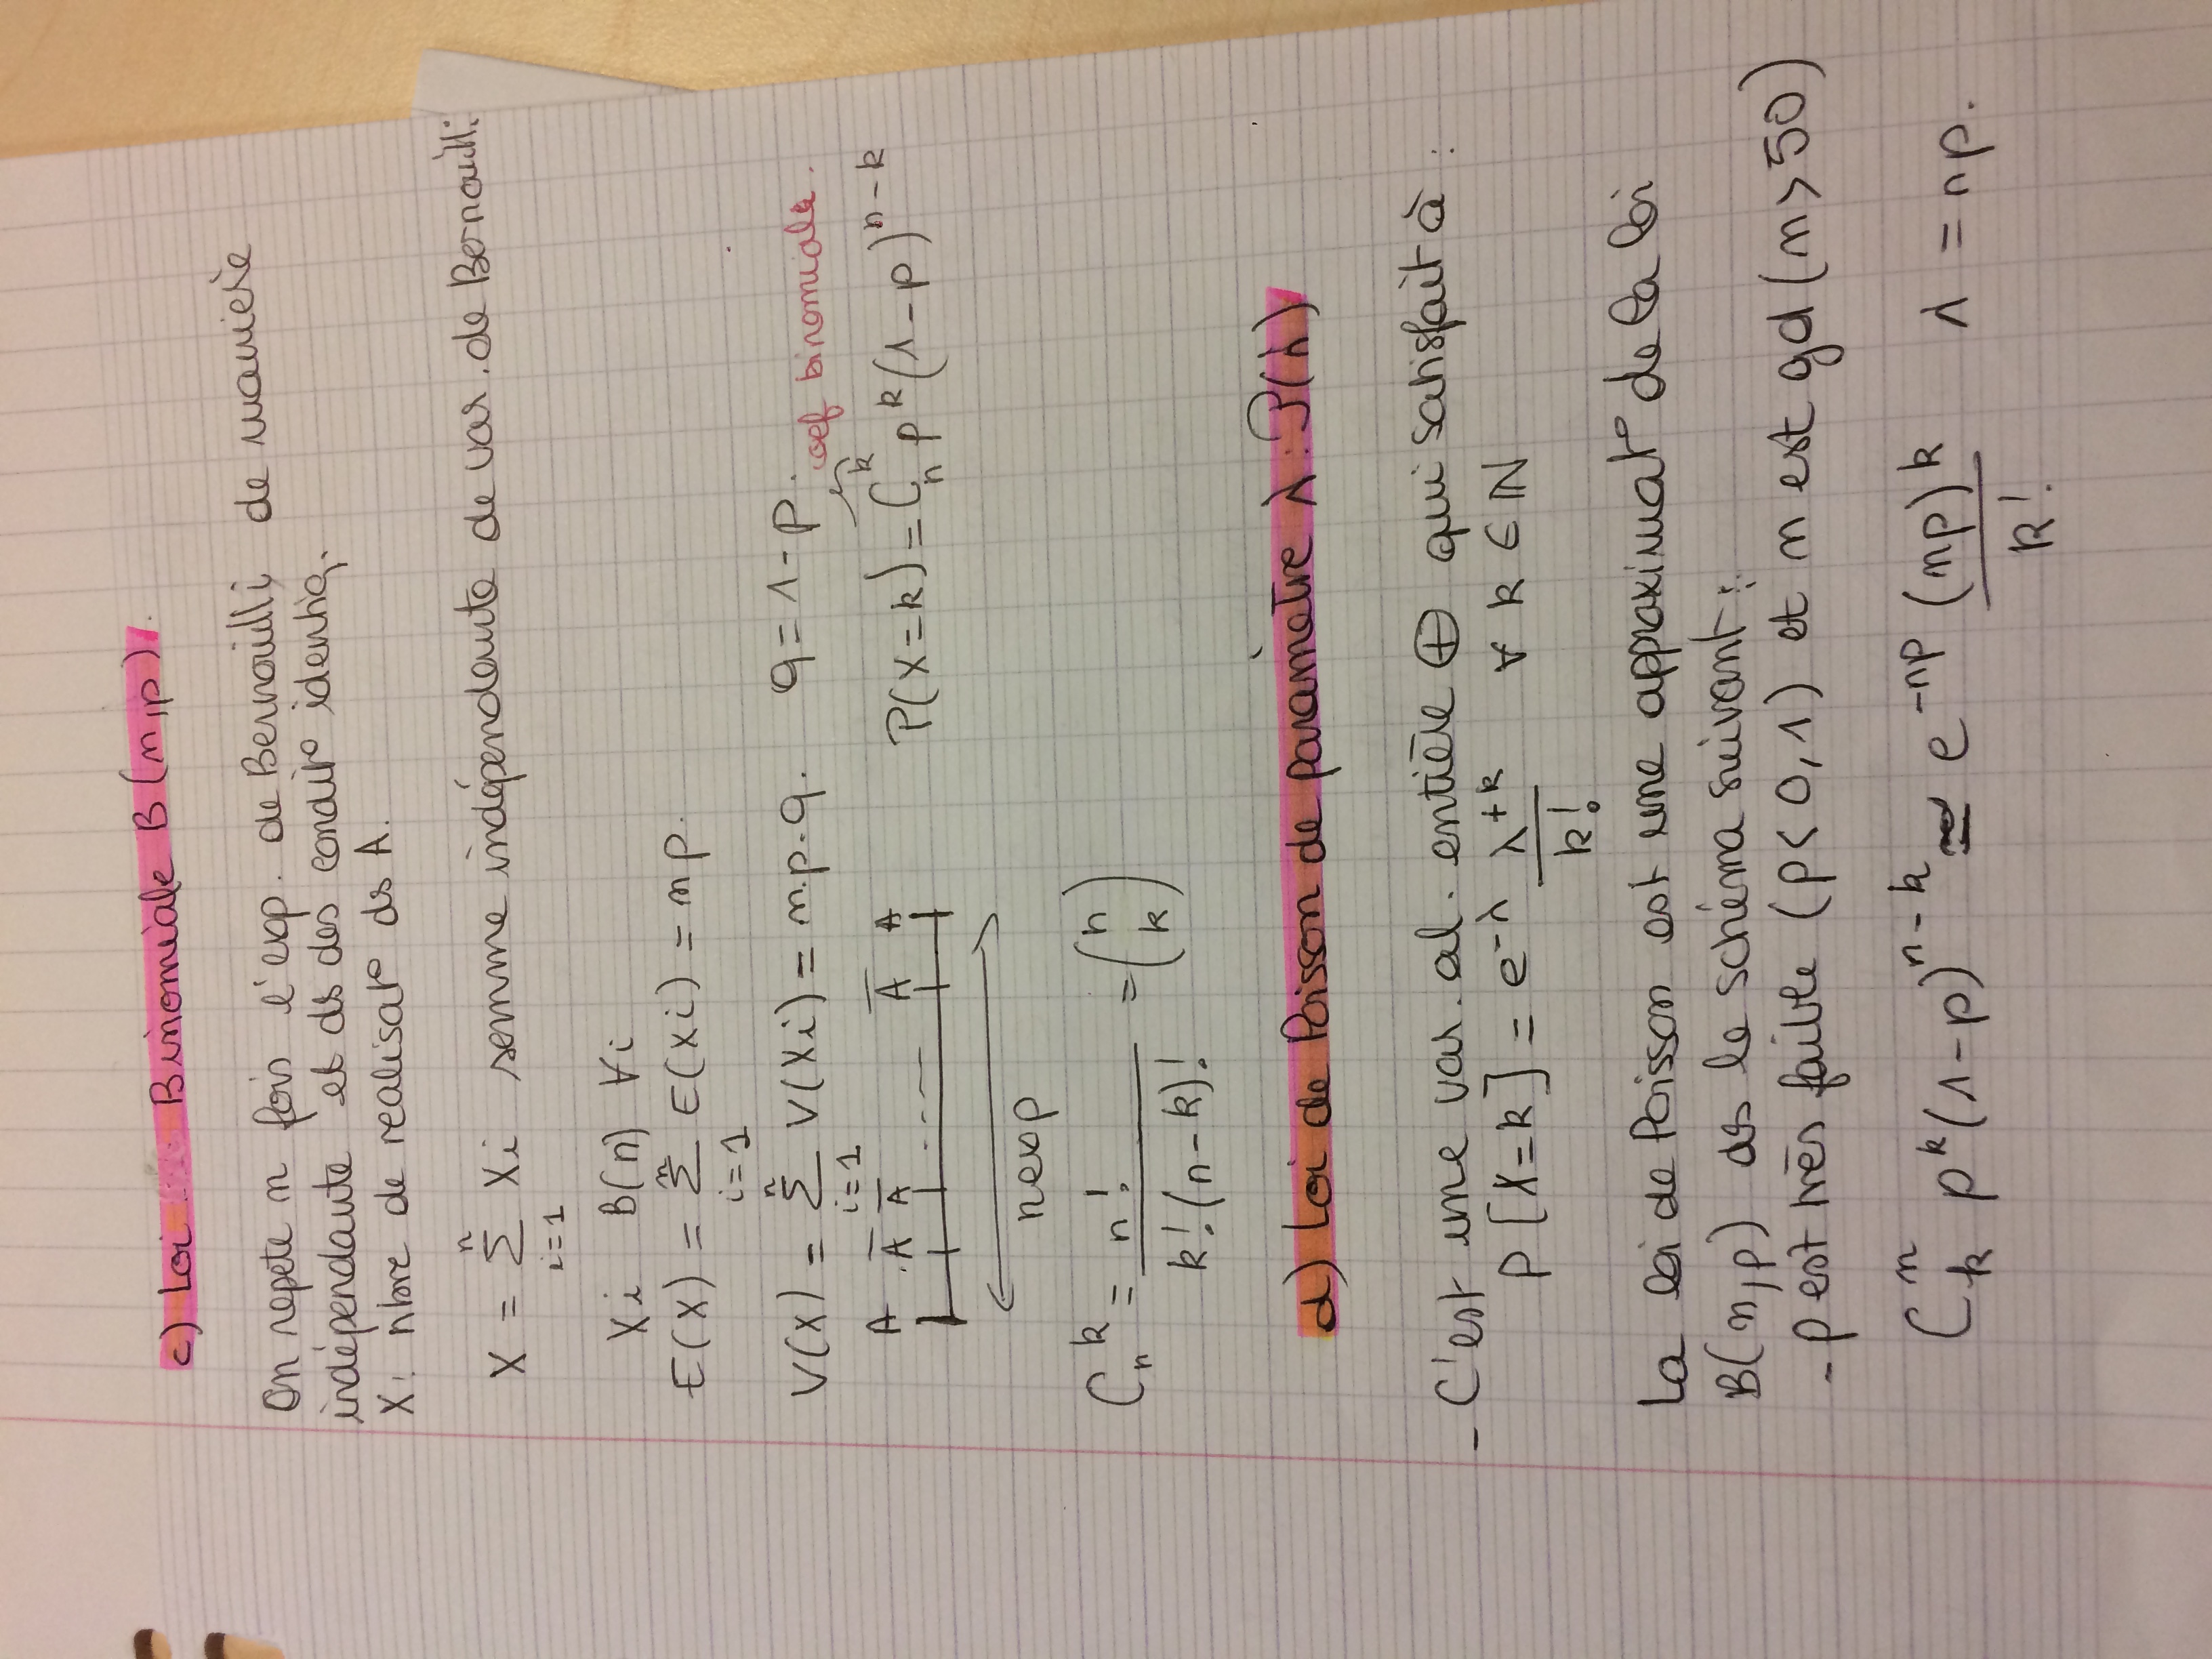 c) Loi Binomiale B(n,p).
On repete n fois l'exp. de Bernouilli, de manière
indépendante et ds des condit° identiq.
X: nbre de realisat° ds A.
X = Σ_{i=1}^{n} Xi somme indépendante de var. de Bernouilli
Xi B(n) ∀i
E(X) = Σ_{i=1}^{n} E(Xi) = np.
V(X) = Σ_{i=1}^{n} V(Xi) = n.p.q. q = 1-p.
coef binomiale.
A Ā Ā ---- Ā A
P(X=k) = C_n^k p^k (1-p)^{n-k}
n exp
C_n^k = n! / k!(n-k)! = (n k)
d) Loi de Poisson de paramètre λ : P(λ)
- C'est une var. al. entière ⊕ qui satisfait à :
P[X=k] = e^{-λ} λ^{+k} / k! ∀ k ∈ ℕ
La loi de Poisson est une approximat° de la loi
B(n,p) ds le schéma suivant :
- p est très faible (p< 0,1) et n est gd (n> 50)
C_k^n p^k (1-p)^{n-k} ≃ e^{-np} (np)^k / k! λ = np.